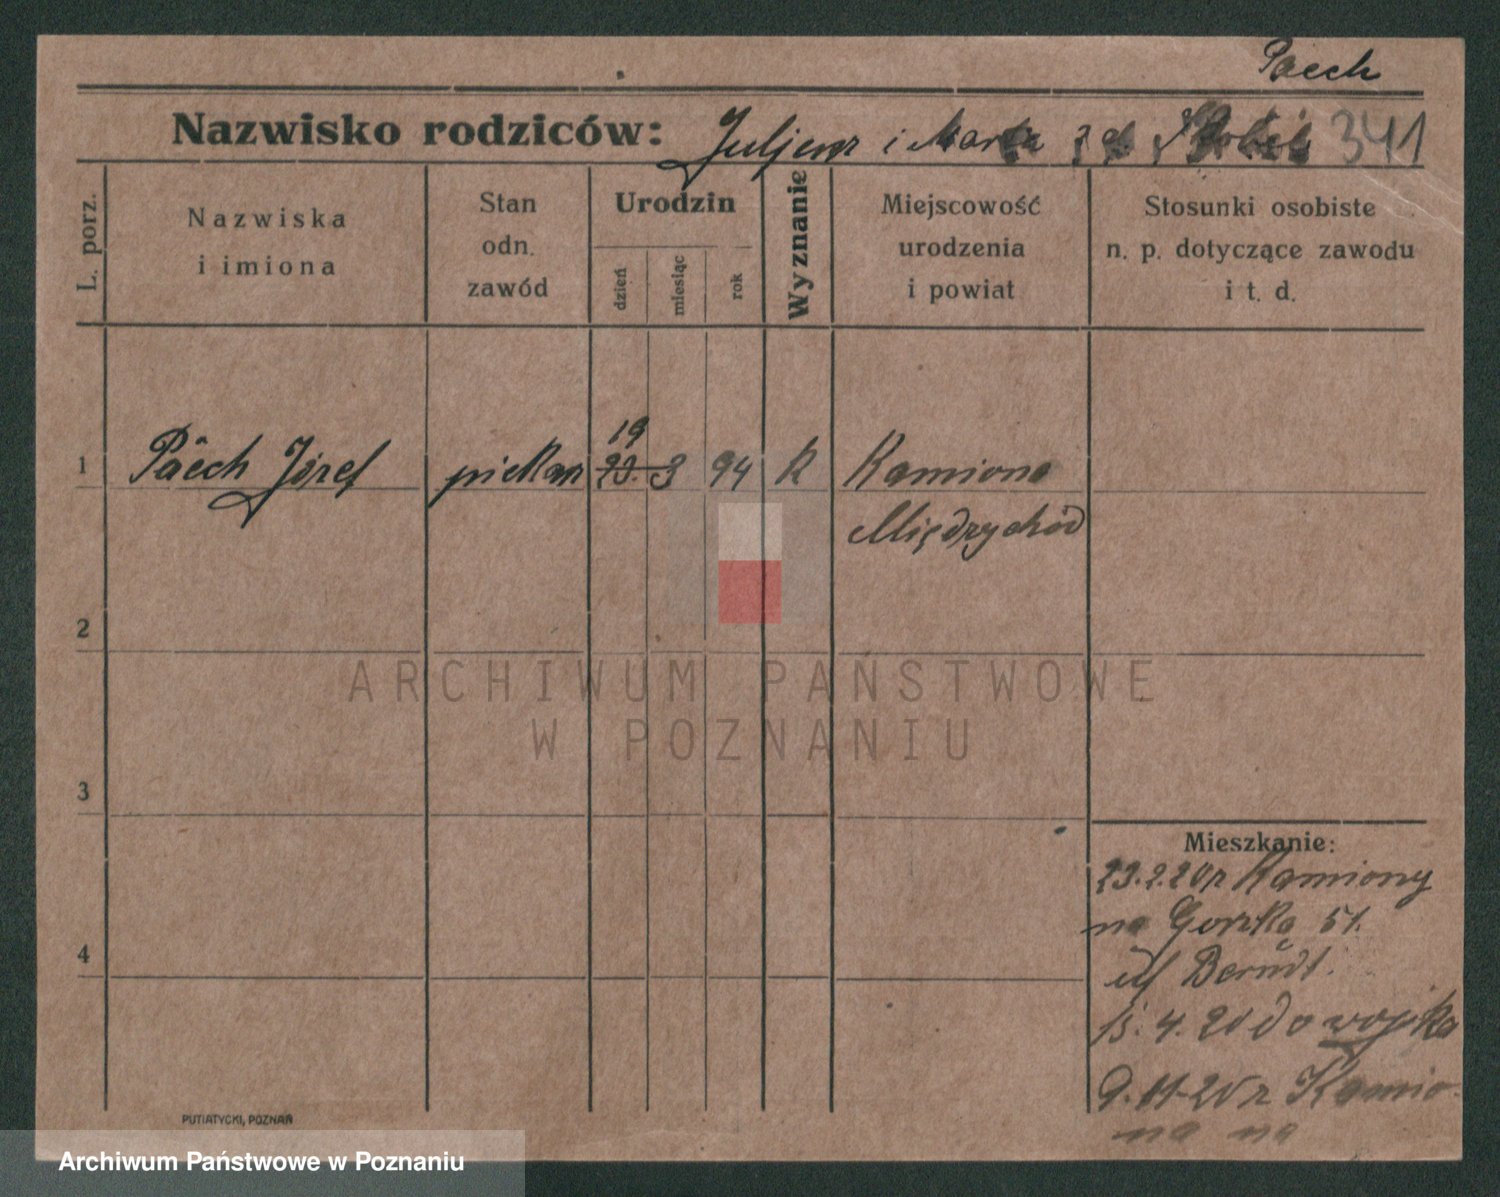 Paech
Nazwisko rodziców: Juljan i Marta 341
L. porz.
Nazwiska
i imiona
Stan
odn.
zawód
Urodzin
dzień
miesiąc
rok
Wyznanie
Miejscowość
urodzenia
i powiat
Stosunki osobiste
n. p. dotyczące zawodu
i t. d.
19
1 Paech Józef piekarz 23. 3 94 k Kamiona
Międzychód
2
3
4
Mieszkanie:
23.2.20 r Kamiony
na Gorzką 51.
uf Berndt.
15. 4. 20 do wojska
9.11-20 r Kamio-
na na
PUTIATYCKI, POZNAŃ
ARCHIWUM PAŃSTWOWE
W POZNANIU
Archiwum Państwowe w Poznaniu